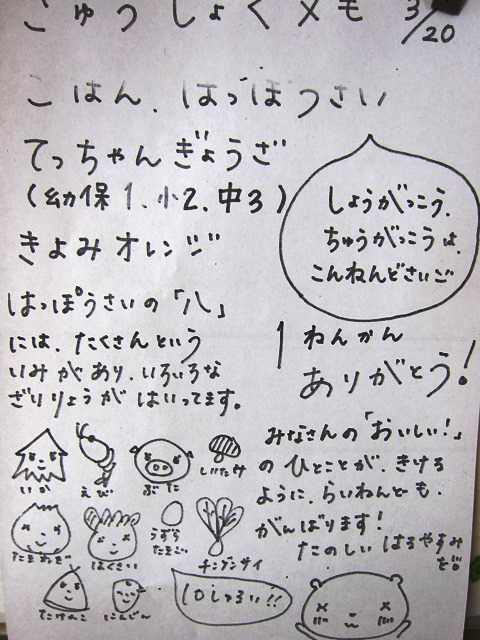 きゅうしょくメモ 3/20
ごはん、はっぽうさい
てっちゃんぎょうざ
(幼保1、小2、中3)
きよみオレンジ
しょうがっこう、
ちゅうがっこうは、
こんねんどさいご
はっぽうさいの「八」
には、たくさんという
いみがあり、いろいろな
ざいりょうがはいってます。
1ねんかん
ありがとう!
みなさんの「おいしい!」
のひとことが、きける
ように、らいねんども、
がんばります!
たのしいはるやすみ
を!!
いか
えび
ぶた
しいたけ
たまねぎ
はくさい
うずら
たまご
チンゲンサイ
たけのこ
にんじん
10しゅるい!!